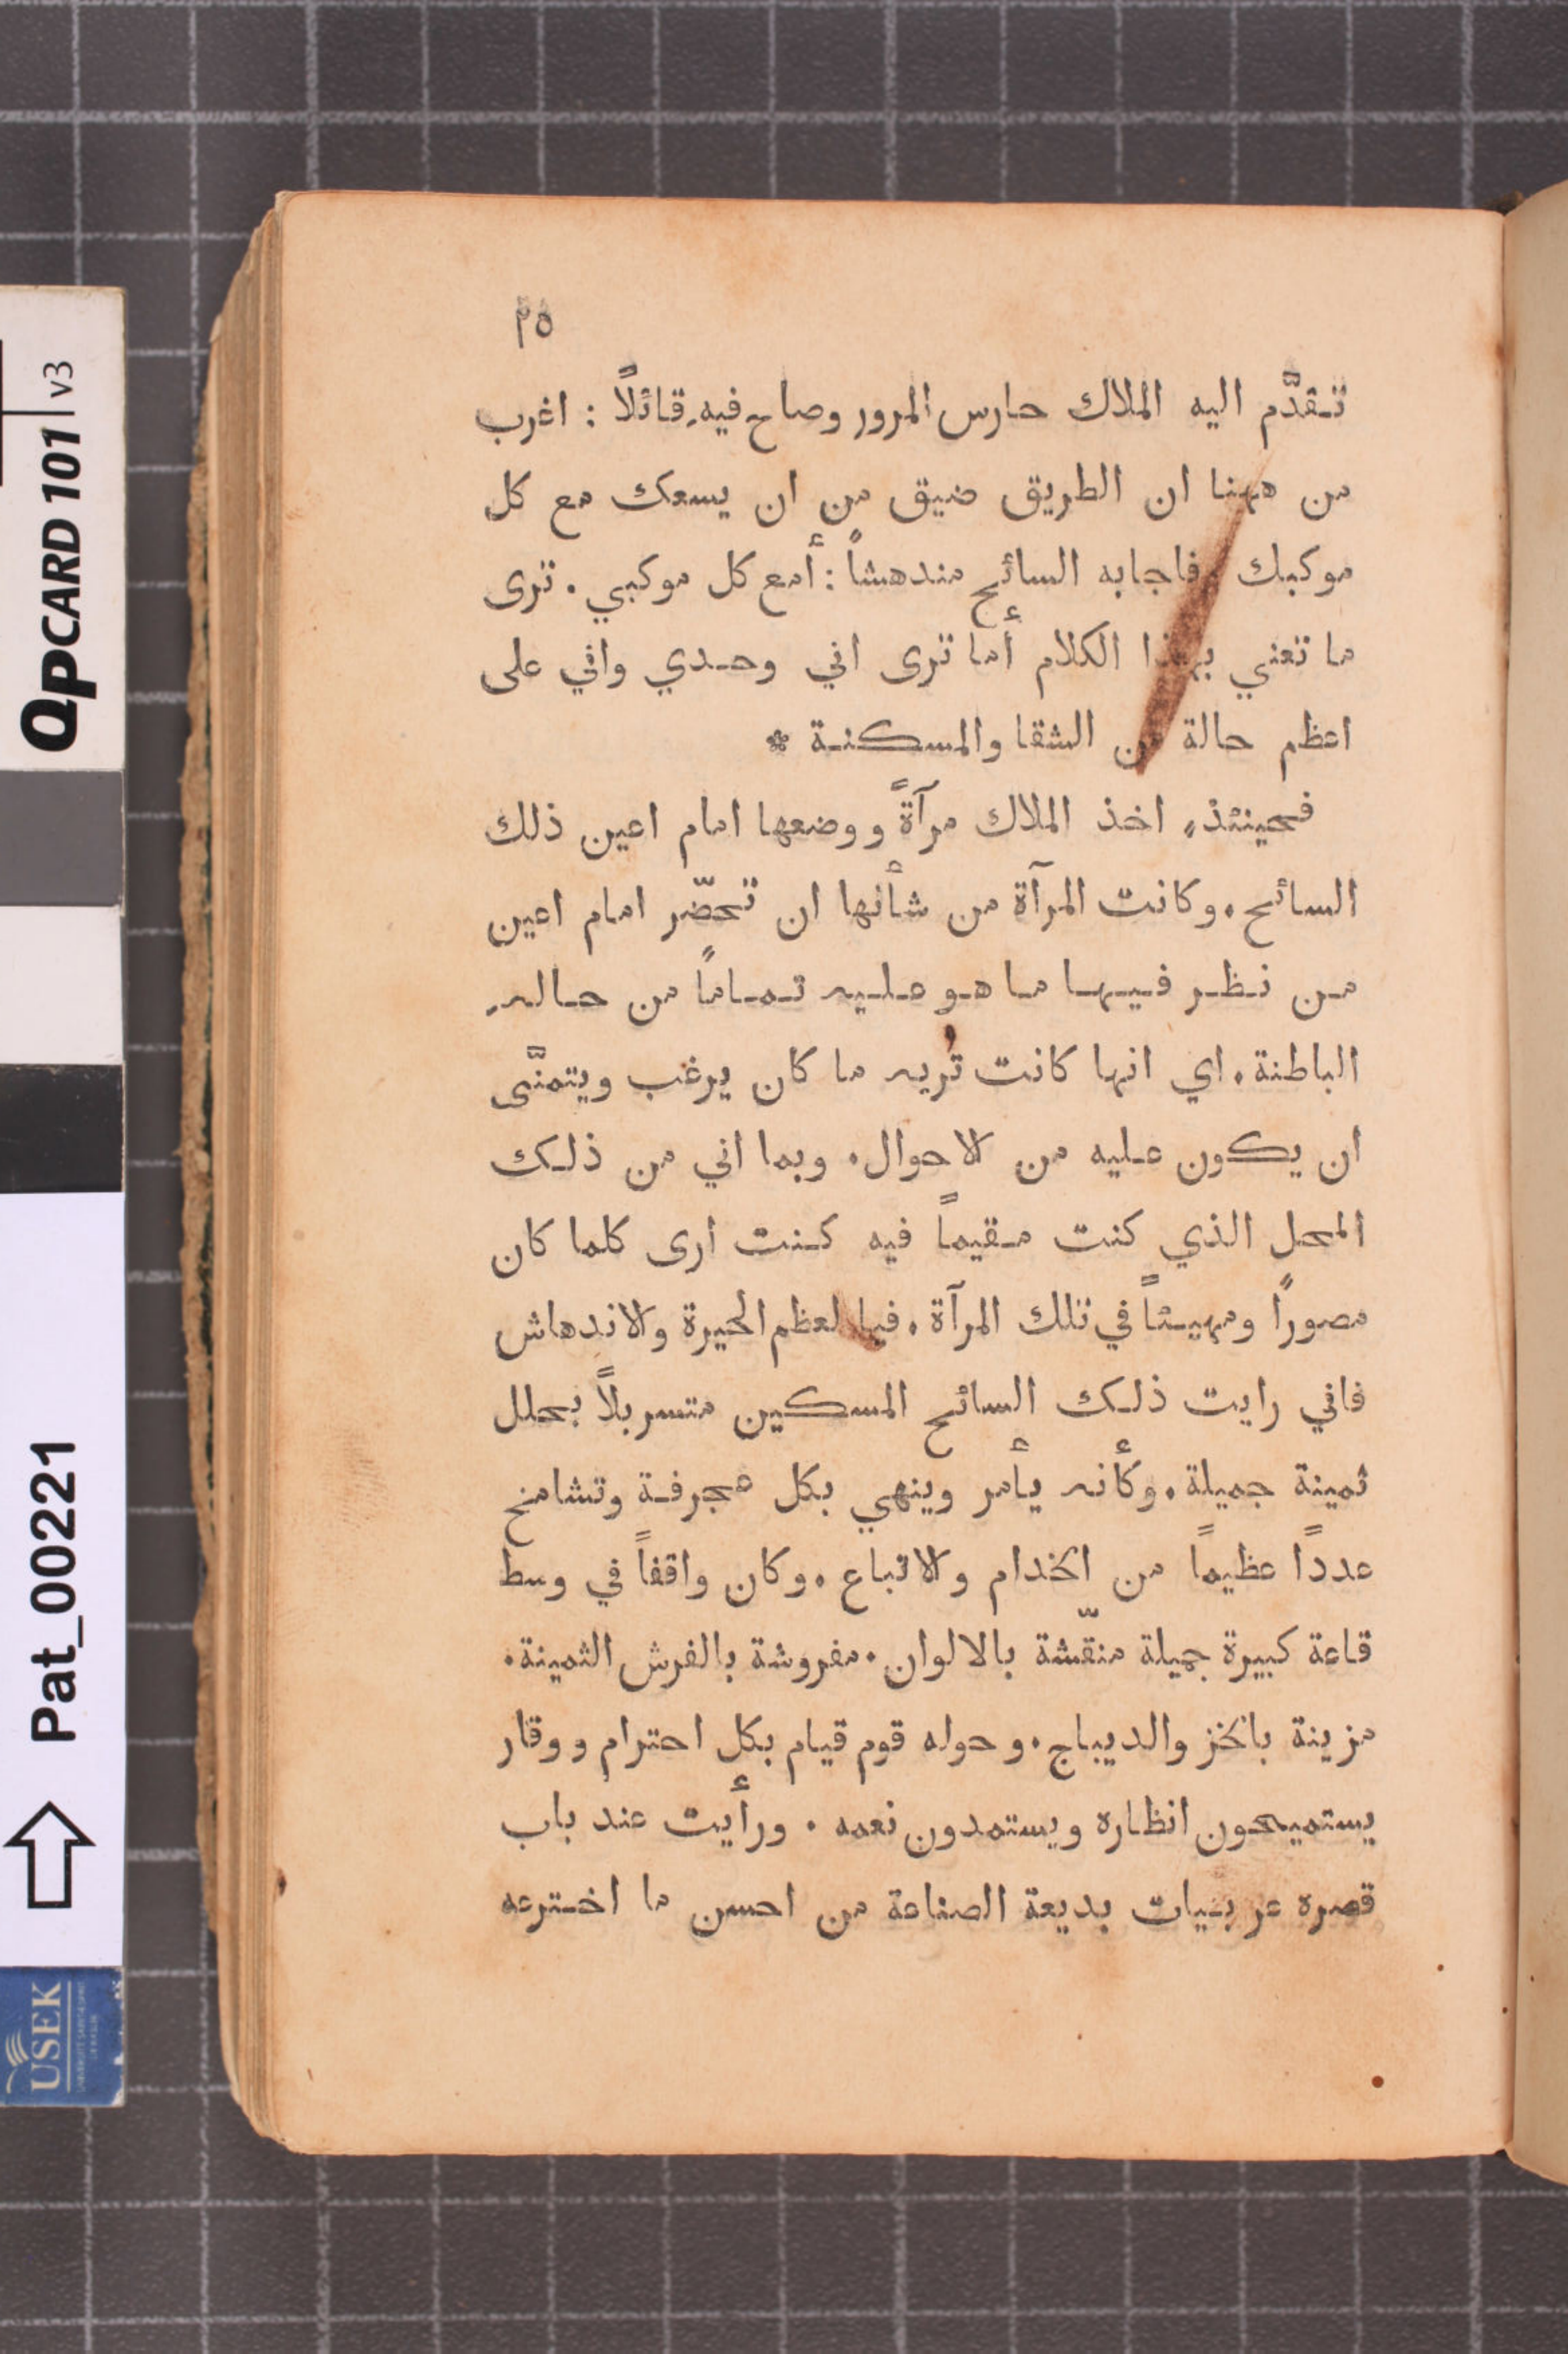 ٢٥
تـقدَّم اليه الملاك حارس المرور وصاح فيهِ قائلًا : اغرب
من ههنا ان الطريق ضيق من ان يسعك مع كل
موكبك . فاجابه السائح مندهشاً : أمع كل موكبي . ترى
ما تعني بهذا الكلام أما ترى اني وحدي واني على
اعظم حالة من الشقا والمسكنة *
فحينئذٍ اخذ الملاك مرآةً ووضعها امام اعين ذلك
السائح . وكانت المرآة من شأنها ان تحضّر امام اعين
من نظر فيها ما هو عليه تماماً من حالهِ
الباطنة . اي انها كانت تُريه ما كان يرغب ويتمنَّى
ان يكون عليه من الاحوال . وبما اني من ذلك
المحل الذي كنت مقيماً فيه كنت ارى كلما كان
مصورًا ومهيئاً في تلك المرآة . فيا لعظم الحيرة والاندهاش
فاني رايت ذلك السائح المسكين متسربلاً بحلل
ثمينة جميلة . وكأنه يأمر وينهي بكل عجرفة وتشامخ
عددًا عظيماً من الخدام والاتباع . وكان واقفاً في وسط
قاعة كبيرة جميلة منقّشة بالالوان . مفروشة بالفرش الثمينة .
مزينة بالخز والديباج . وحوله قوم قيام بكل احترام ووقار
يستميحون انظاره ويستمدون نعمه . ورأيت عند باب
قصره عربيات بديعة الصناعة من احسن ما اخترعه
QPCARD 101 v3
Pat_00221
USEK